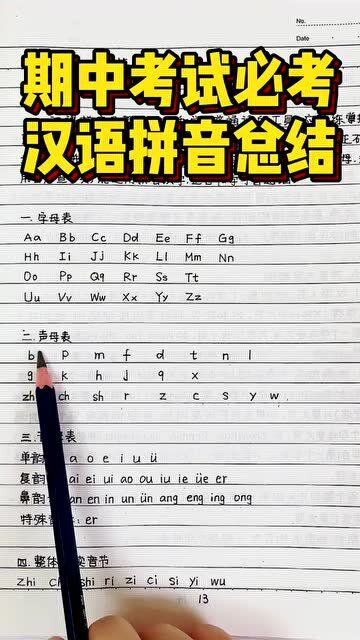 No.
Date
期中考试必考
汉语拼音总结
一.字母表
Aa Bb Cc Dd Ee Ff Gg
Hh Ii Jj Kk Ll Mm Nn
Oo Pp Qq Rr Ss Tt
Uu Vv Ww Xx Yy Zz
二.声母表
b p m f d t n l
g k h j q x
zh ch sh r z c s y w
三. 表
单韵 a o e i u ü
复韵 ai ei ui ao ou iu ie üe er
鼻韵 an en in un ün ang eng ing ong
特殊 er
四.整体 音节
zhi chi shi ri zi ci si yi wu
13